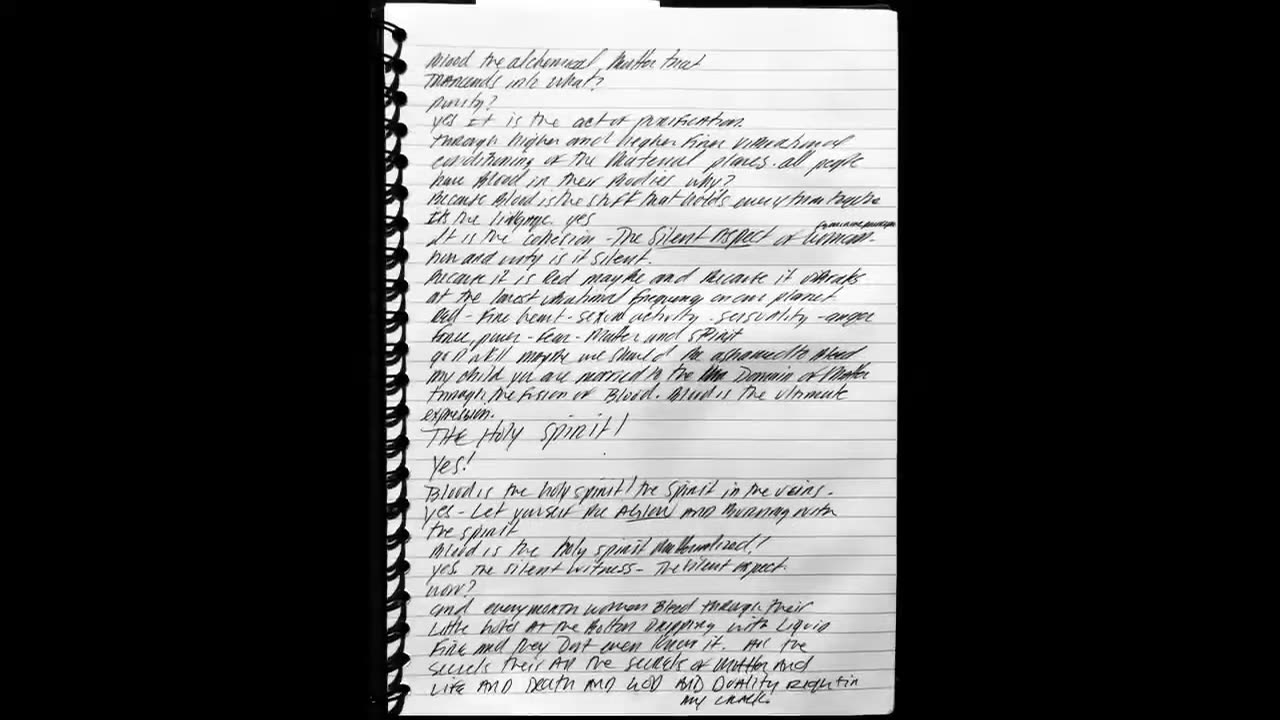 Blood the alchemical matter that
TRANCENDS into what?
purity?
yes It is the act of purification.
through higher and higher finer vibrational
conditioning of the Material planes. all people
have Blood in their Bodies why?
Because Blood is the stuff that holds every
It's the yes
It is the cohesion - The Silent Aspect of
how and why is it silent.
Because it is Red maybe and Because it vibrates
at the lowest vibrational frequency on our planet
Red - Fire heart - sexual activity - sensuality - anger
Force, power - Fear - Matter and spirit
maybe we should be ashamed to bleed
my child you are married to the Domain of Matter
through the fusion of Blood. Blood is the ultimate
expression.
THE Holy Spirit!
Yes!
Blood is the holy spirit! the spirit in the veins.
yes - Let yourself be Aglow AND Burning with
the spirit
Blood is the holy spirit Materialized!
yes the silent witness - The silent aspect.
now?
and every month women Bleed through their
Little holes AT the Bottom Dripping with Liquid
Fire and they Dont even know it. All the
secrets their All the secrets of Matter AND
LIFE AND DEATH AND GOD AND DUALITY RIGHT in
my